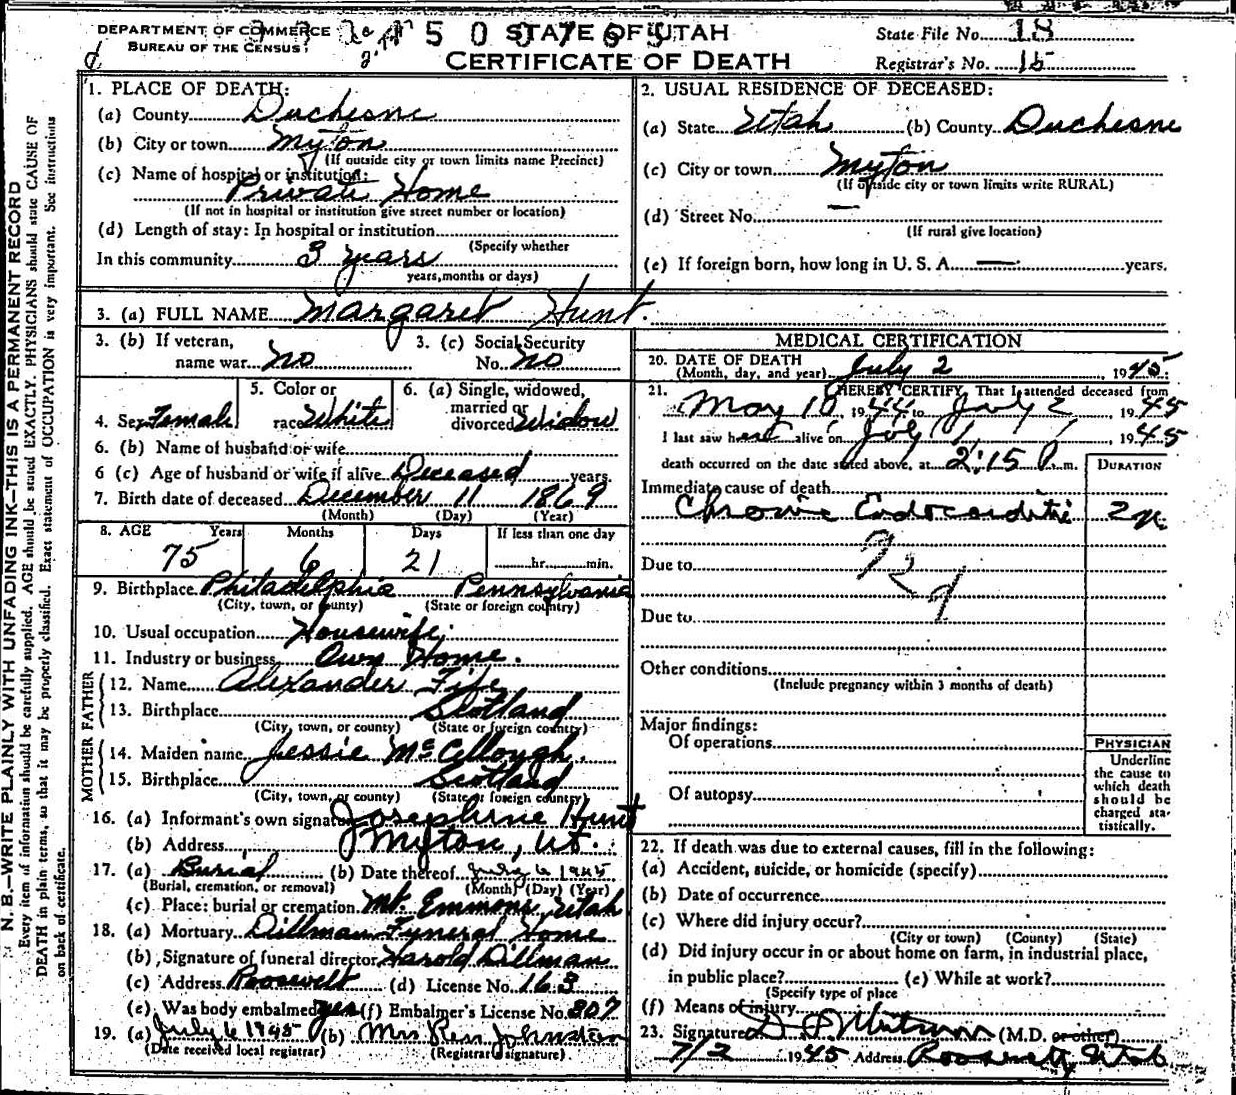 DEPARTMENT OF COMMERCE
BUREAU OF THE CENSUS
STATE OF UTAH
CERTIFICATE OF DEATH
State File No. 18
Registrar's No. 15
N. B.—WRITE PLAINLY WITH UNFADING INK—THIS IS A PERMANENT RECORD
Every item of information should be carefully supplied. AGE should be stated EXACTLY. PHYSICIANS should state CAUSE OF
DEATH in plain terms, so that it may be properly classified. Exact statement of OCCUPATION is very important. See instructions
on back of certificate.
1. PLACE OF DEATH:
(a) County Duchesne
(b) City or town Myton
(If outside city or town limits name Precinct)
(c) Name of hospital or institution:
Private Home
(If not in hospital or institution give street number or location)
(d) Length of stay: In hospital or institution
(Specify whether
In this community 3 years
years, months or days)
2. USUAL RESIDENCE OF DECEASED:
(a) State Utah (b) County Duchesne
(c) City or town Myton
(If outside city or town limits write RURAL)
(d) Street No. —
(If rural give location)
(e) If foreign born, how long in U. S. A. — years.
3. (a) FULL NAME Margaret Hunt.
3. (b) If veteran,
name war no
3. (c) Social Security
No. no
4. Sex Female
5. Color or
race White
6. (a) Single, widowed,
married or
divorced Widow
6. (b) Name of husband or wife
6 (c) Age of husband or wife if alive Deceased years.
7. Birth date of deceased December 11 1869
(Month) (Day) (Year)
8. AGE Years Months Days If less than one day
75 6 21 hr. min.
9. Birthplace Philadelphia Pennsylvania
(City, town, or county) (State or foreign country)
10. Usual occupation Housewife.
11. Industry or business Own Home.
FATHER
12. Name Alexander Fife
13. Birthplace Scotland
(City, town, or county) (State or foreign country)
MOTHER
14. Maiden name Jessie McCullough.
15. Birthplace Scotland
(City, town, or county) (State or foreign country)
16. (a) Informant's own signature Josephine Hunt
(b) Address Myton, Ut.
17. (a) Burial (b) Date thereof July 6 1945
(Burial, cremation, or removal) (Month) (Day) (Year)
(c) Place: burial or cremation Mt. Emmons, Utah
18. (a) Mortuary Dillman Funeral Home
(b) Signature of funeral director Harold Dillman
(c) Address Roosevelt (d) License No. 163
(e) Was body embalmed yes (f) Embalmer's License No. 307
19. (a) July 6 1945 (b) Mrs Johnston
(Date received local registrar) (Registrar's signature)
MEDICAL CERTIFICATION
20. DATE OF DEATH
(Month, day, and year) July 2 1945.
21. I HEREBY CERTIFY, That I attended deceased from
May 10, 1944 to July 2, 1945
I last saw her alive on July 1, 1945
death occurred on the date stated above, at 2:15 P. m.
DURATION
Immediate cause of death
Chronic Endocarditis 2 yr
Due to
Due to
Other conditions
(Include pregnancy within 3 months of death)
Major findings:
Of operations
Of autopsy
PHYSICIAN
Underline
the cause to
which death
should be
charged sta-
tistically.
22. If death was due to external causes, fill in the following:
(a) Accident, suicide, or homicide (specify)
(b) Date of occurrence
(c) Where did injury occur?
(City or town) (County) (State)
(d) Did injury occur in or about home on farm, in industrial place,
in public place? (e) While at work?
(Specify type of place
(f) Means of injury
23. Signature (M.D. or other)
7/2 1945 Address Roosevelt, Utah